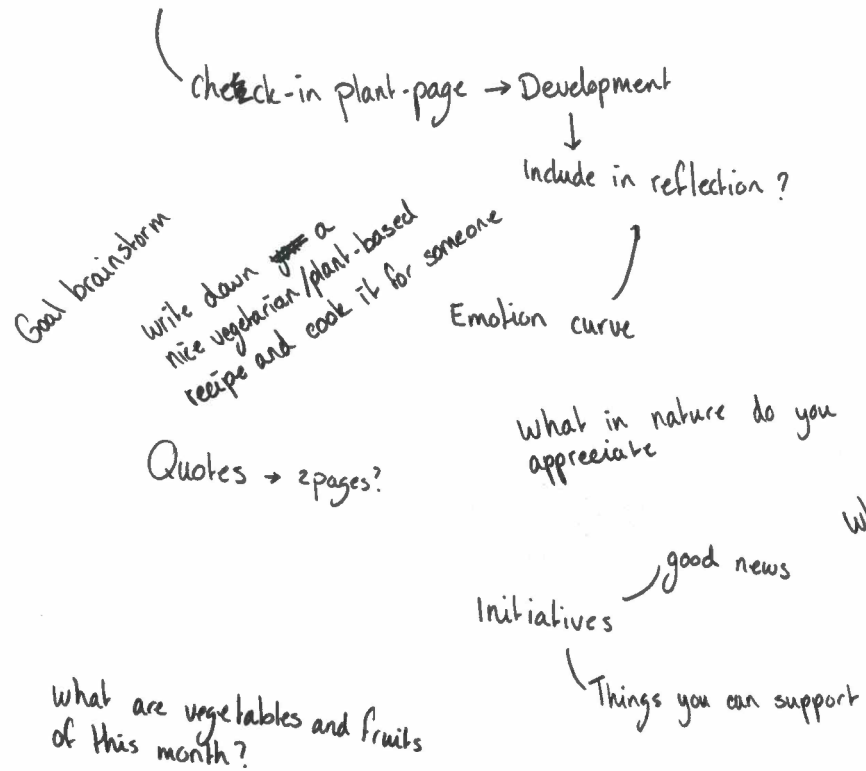 check-in plant-page → Development
↓
Include in reflection ?
Goal brainstorm
write down a
nice vegetarian/plant-based
recipe and cook it for someone
Emotion curve
What in nature do you
appreciate
Quotes → 2 pages?
good news
Initiatives
Things you can support
what are vegetables and fruits
of this month?